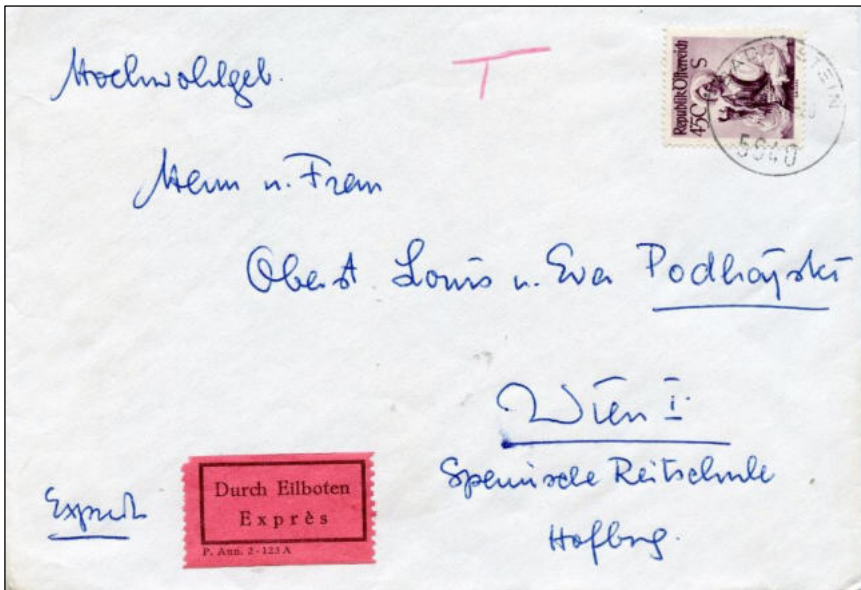 Hochwohlgeb.
T
Republik Österreich
45 G S
5640
Herrn u. Frau
Oberst Louis u. Eva Podhájski
Wien I.
Spanische Reitschule
Hofburg.
Express
Durch Eilboten
Exprès
P. Ann. 2-123 A